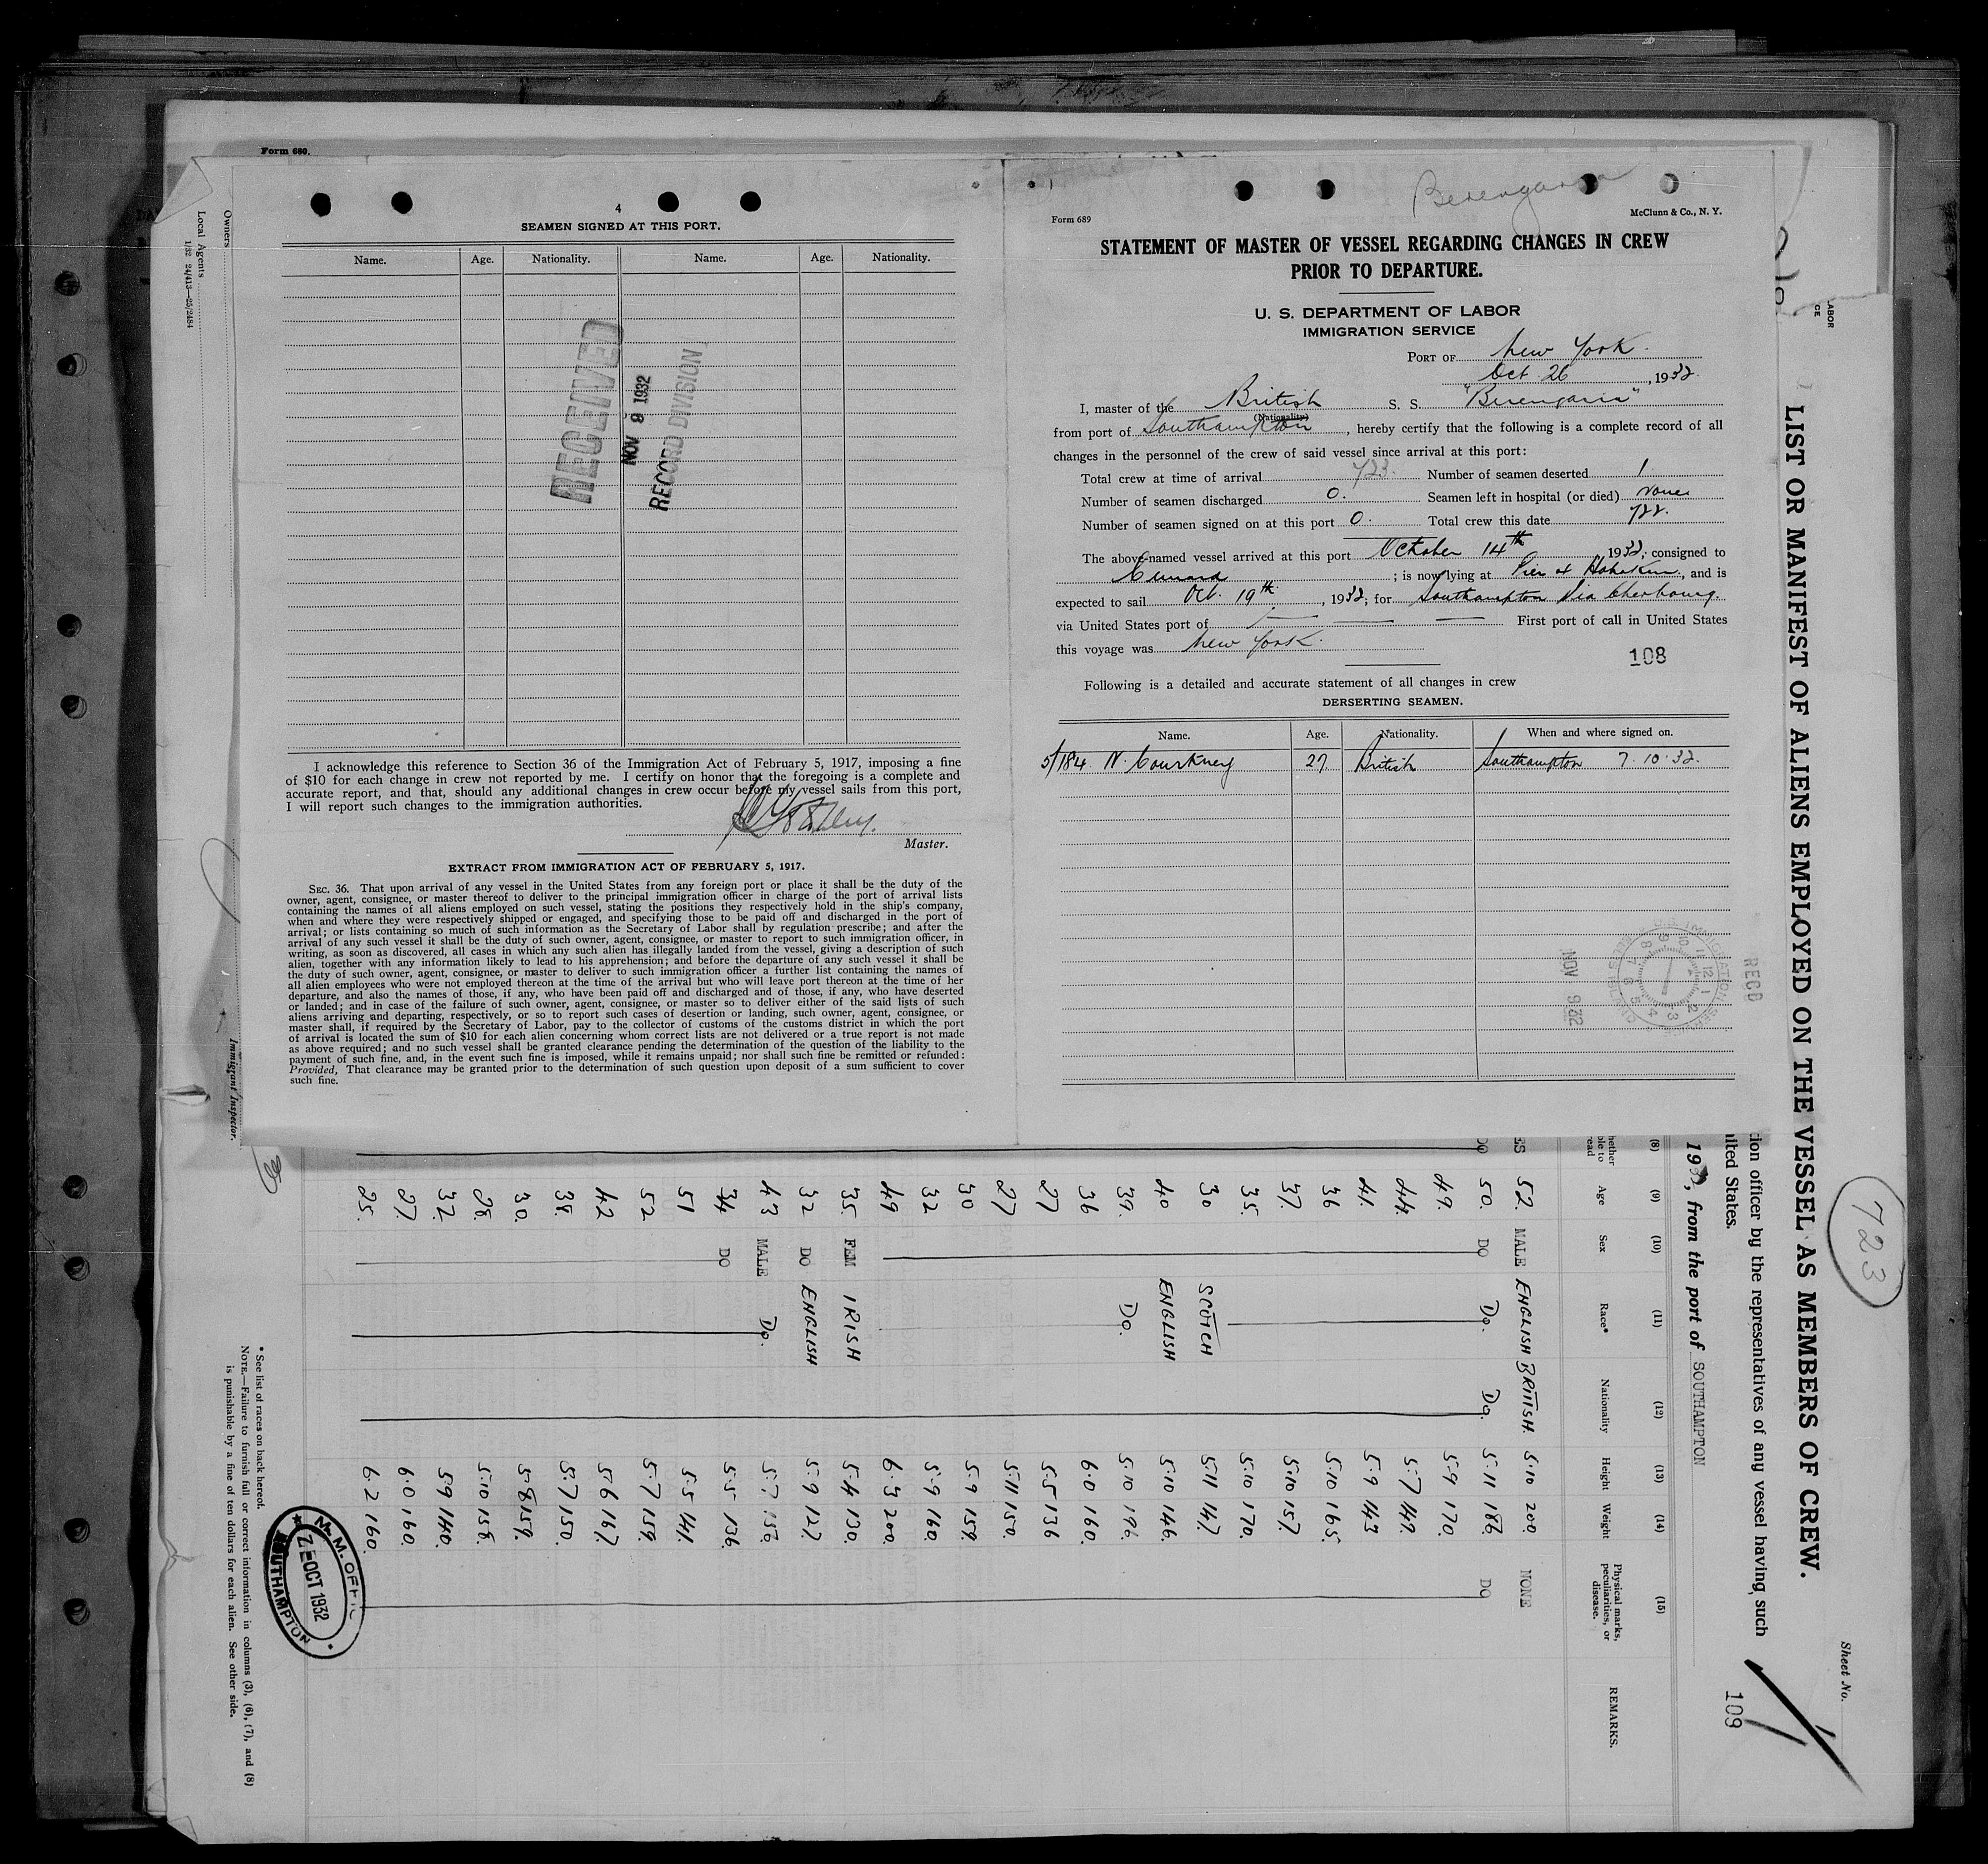 Form 680.
Owners
Local Agents
1/32 24/413—25/2484
Immigrant Inspector.
4
SEAMEN SIGNED AT THIS PORT.
Name. Age. Nationality. Name. Age. Nationality.
RECEIVED
NOV 9 1932
RECORD DIVISION
I acknowledge this reference to Section 36 of the Immigration Act of February 5, 1917, imposing a fine
of $10 for each change in crew not reported by me. I certify on honor that the foregoing is a complete and
accurate report, and that, should any additional changes in crew occur before my vessel sails from this port,
I will report such changes to the immigration authorities.
Master.
EXTRACT FROM IMMIGRATION ACT OF FEBRUARY 5, 1917.
SEC. 36. That upon arrival of any vessel in the United States from any foreign port or place it shall be the duty of the
owner, agent, consignee, or master thereof to deliver to the principal immigration officer in charge of the port of arrival lists
containing the names of all aliens employed on such vessel, stating the positions they respectively hold in the ship's company,
when and where they were respectively shipped or engaged, and specifying those to be paid off and discharged in the port of
arrival; or lists containing so much of such information as the Secretary of Labor shall by regulation prescribe; and after the
arrival of any such vessel it shall be the duty of such owner, agent, consignee, or master to report to such immigration officer, in
writing, as soon as discovered, all cases in which any such alien has illegally landed from the vessel, giving a description of such
alien, together with any information likely to lead to his apprehension; and before the departure of any such vessel it shall be
the duty of such owner, agent, consignee, or master to deliver to such immigration officer a further list containing the names of
all alien employees who were not employed thereon at the time of the arrival but who will leave port thereon at the time of her
departure, and also the names of those, if any, who have been paid off and discharged and of those, if any, who have deserted
or landed; and in case of the failure of such owner, agent, consignee, or master so to deliver either of the said lists of such
aliens arriving and departing, respectively, or so to report such cases of desertion or landing, such owner, agent, consignee, or
master shall, if required by the Secretary of Labor, pay to the collector of customs of the customs district in which the port
of arrival is located the sum of $10 for each alien concerning whom correct lists are not delivered or a true report is not made
as above required; and no such vessel shall be granted clearance pending the determination of the question of the liability to the
payment of such fine, and, in the event such fine is imposed, while it remains unpaid; nor shall such fine be remitted or refunded:
Provided, That clearance may be granted prior to the determination of such question upon deposit of a sum sufficient to cover
such fine.
Berengaria
Form 689 McClunn & Co., N. Y.
STATEMENT OF MASTER OF VESSEL REGARDING CHANGES IN CREW
PRIOR TO DEPARTURE.
U. S. DEPARTMENT OF LABOR
IMMIGRATION SERVICE
PORT OF New York.
Oct 26, 1932.
I, master of the British S. S. "Berengaria"
(Nationality)
from port of Southampton, hereby certify that the following is a complete record of all
changes in the personnel of the crew of said vessel since arrival at this port:
Total crew at time of arrival 723. Number of seamen deserted 1
Number of seamen discharged 0. Seamen left in hospital (or died) None
Number of seamen signed on at this port 0. Total crew this date 722.
The above-named vessel arrived at this port October 14th, 1932; consigned to
Cunard; is now lying at Pier 4 Hoboken, and is
expected to sail Oct. 19th, 1932; for Southampton Via Cherbourg.
via United States port of — — — First port of call in United States
this voyage was New York.
108
Following is a detailed and accurate statement of all changes in crew
DERSERTING SEAMEN.
Name. Age. Nationality. When and where signed on.
5/184 N. Courtney 27 British Southampton 7.10.32.
RECD
NOV 9 32
LABOR
CE
LIST OR MANIFEST OF ALIENS EMPLOYED ON THE VESSEL AS MEMBERS OF CREW.
723
Sheet No.
109
tion officer by the representatives of any vessel having such
ited States.
193, from the port of SOUTHAMPTON
(8) (9) (10) (11) (12) (13) (14) (15)
hether ble to read Age Sex Race* Nationality Height Weight Physical marks, peculiarities, or disease. REMARKS.
ES 52. MALE ENGLISH BRITISH. 5.10 200. NONE
DO 50. DO Do. Do. 5.11 186. DO
49. 5.9 170.
44. 5.7 149.
41. 5.9 143
36 5.10 165.
37. 5.10 157.
35. 5.10 170.
30 SCOTCH 5.11 147.
40 ENGLISH 5.10 146.
39. Do. 5.10 196.
36 6.0 160.
27 5.5 136
27 5.11 150.
30 5.9 159.
32 5.9 160.
49 6.3 200.
35. FEM IRISH 5.4 130.
32 DO ENGLISH 5.9 127.
43 MALE Do. 5.7 156.
34 DO 5.5 136.
51 5.5 141.
52 5.7 159.
42 5.6 167.
38. 5.7 150.
30. 5.8 159.
28. 5.10 158.
32. 5.9 140.
27. 6.0 160.
25. 6.2 160.
M.M. OFFIC
7 OCT 1932
SOUTHAMPTON
* See list of races on back hereof.
NOTE.—Failure to furnish full or correct information in columns (3), (6), (7), and (8)
is punishable by a fine of ten dollars for each alien. See other side.